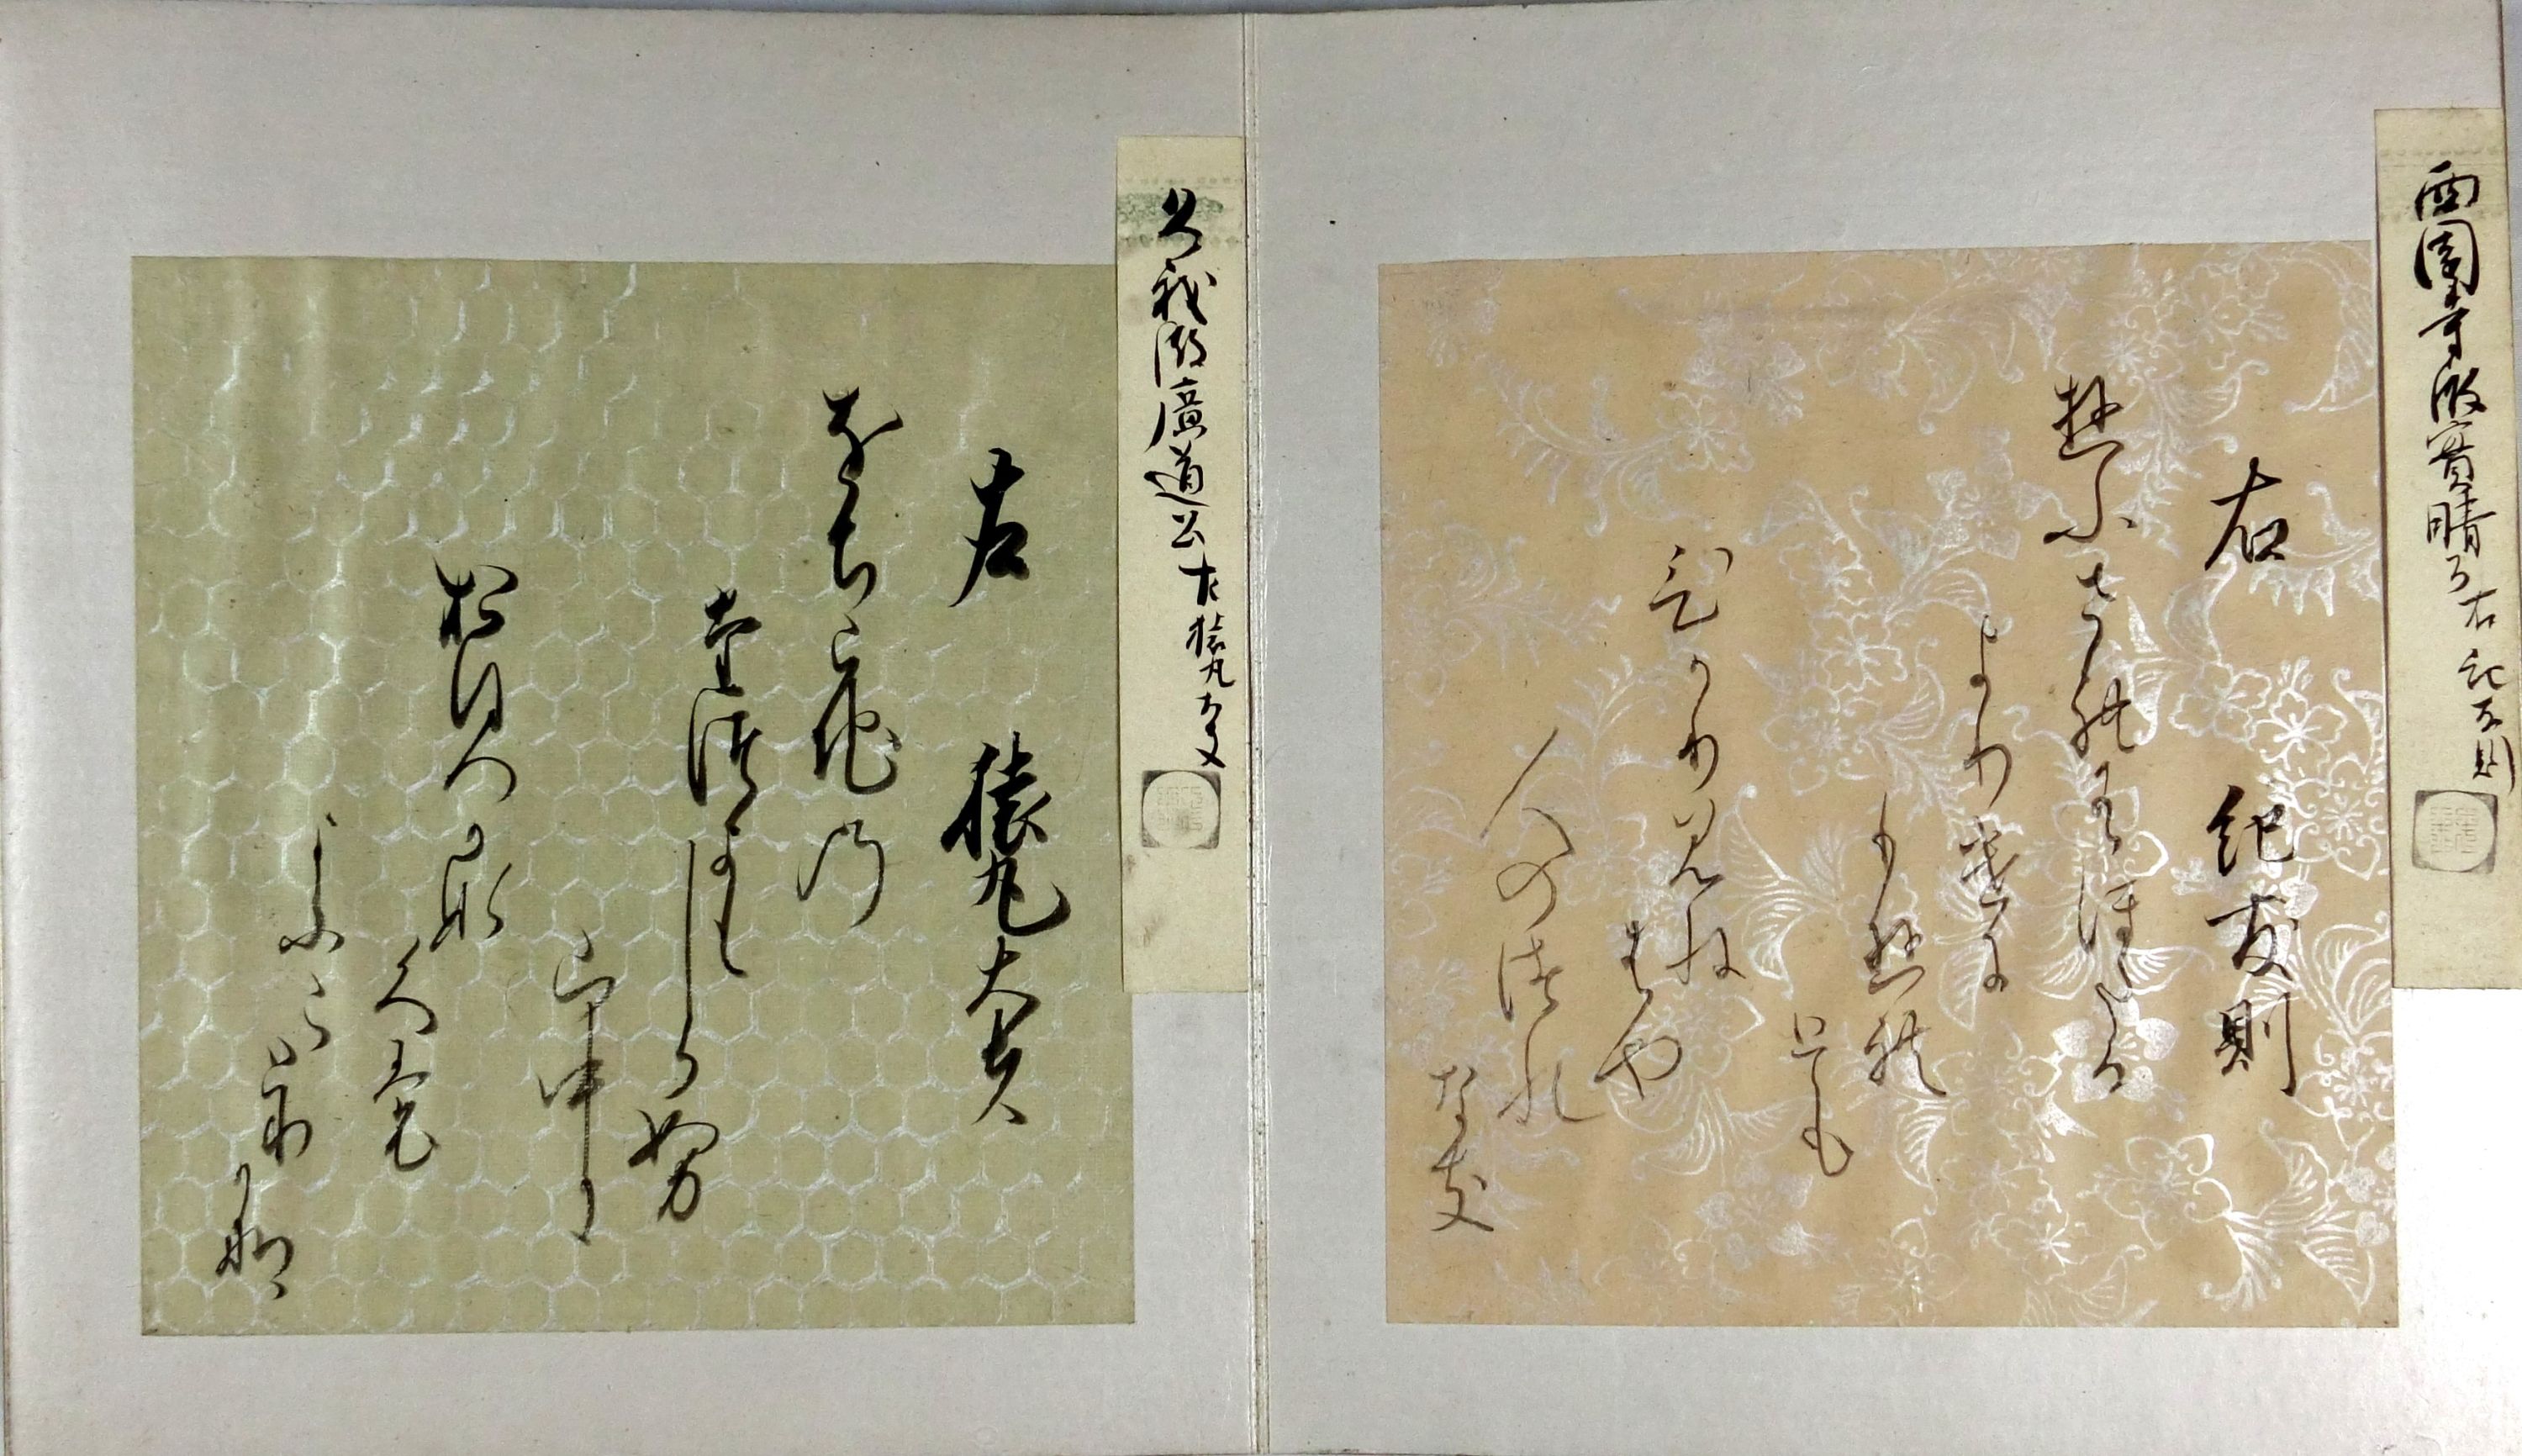 西園寺殿實晴公 右 紀友則
右 紀友則
ゆふされはほたる
よりけに
もゆれ
とも
ひかり見ね
はや
人のつれ
なき
久我殿廣道公 左 猿丸大夫
左 猿丸大夫
をちこちの
たつきも
しらぬ
山中に
おほつかな
くも
よふことり
かな